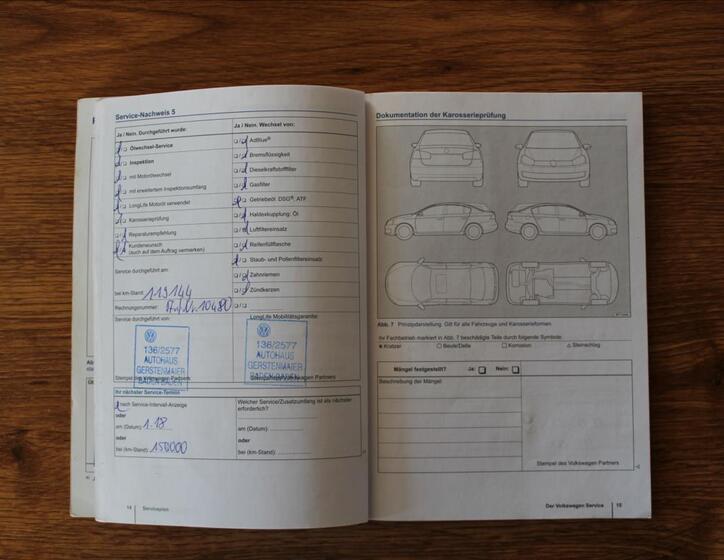 Service-Nachweis 5
Ja / Nein. Durchgeführt wurde:
Ölwechsel-Service
Inspektion
mit Motorölwechsel
mit erweitertem Inspektionsumfang
LongLife Motoröl verwendet
Karosserieprüfung
Reparaturempfehlung
Kundenwunsch
(auch auf dem Auftrag vermerken)
Service durchgeführt am:
bei km-Stand: 119144
Rechnungsnummer:
Service durchgeführt von:
136/2577
AUTOHAUS
GERSTENMAIER
BADEN-BADEN
Stempel des Volkswagen Partners
Ja / Nein. Wechsel von:
AdBlue®
Bremsflüssigkeit
Dieselkraftstofffilter
Gasfilter
Getriebeöl: DSG®, ATF
Haldexkupplung: Öl
Luftfiltereinsatz
Reifenfüllflasche
Staub- und Pollenfiltereinsatz
Zahnriemen
Zündkerzen
LongLife Mobilitätsgarantie:
136/2577
AUTOHAUS
GERSTENMAIER
BADEN-BADEN
Stempel des Volkswagen Partners
Ihr nächster Service-Termin
nach Service-Intervall-Anzeige
oder
am (Datum): 1.18
oder
bei (km-Stand): 150000
Welcher Service/Zusatzumfang ist als nächster
erforderlich?
am (Datum):
oder
bei (km-Stand):
14 Serviceplan
Dokumentation der Karosserieprüfung
Abb. 7 Prinzipdarstellung. Gilt für alle Fahrzeuge und Karosserieformen.
Ihr Fachbetrieb markiert in Abb. 7 beschädigte Teile durch folgende Symbole:
Kratzer Beule/Delle Korrosion Steinschlag
Mängel festgestellt? Ja: Nein:
Beschreibung der Mängel:
Stempel des Volkswagen Partners
Der Volkswagen Service 15